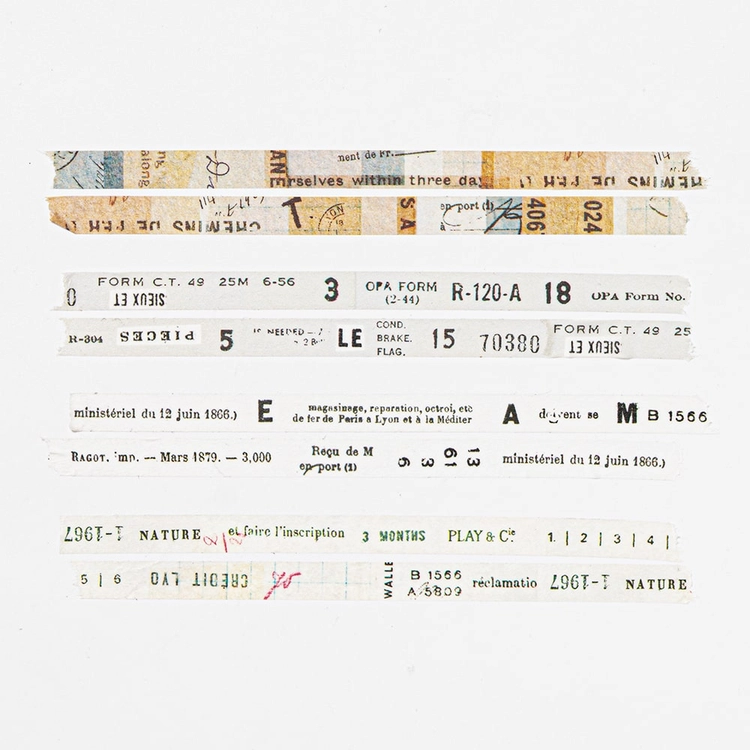 ment de Fr.
rselves within three day
CHEMINS DE FER
CHEMINS DE FER T. LYON S A en port (1) 406 024
0 FORM C.T. 49 25M 6-56 3 OPA FORM R-120-A 18 OPA Form No.
SIEUX ET (2-44)
R-304 PIECES 5 IF NEEDED LE COND. 15 70380 FORM C.T. 49 25
BRAKE. SIEUX ET
FLAG.
ministériel du 12 juin 1866.) E magasinage, reparation, octroi, etc A doivent se M B 1566
de fer de Paris a Lyon et à la Méditer
RAGOT. imp. — Mars 1879. — 3,000 Reçu de M 6 3 61 13 ministériel du 12 juin 1866.)
en port (1)
1-1967 NATURE et faire l'inscription 3 MONTHS PLAY & Cie 1. | 2 | 3 | 4 |
5 | 6 CRÉDIT LYO WALLE B 1566 réclamatio 1-1967 NATURE
A 5809